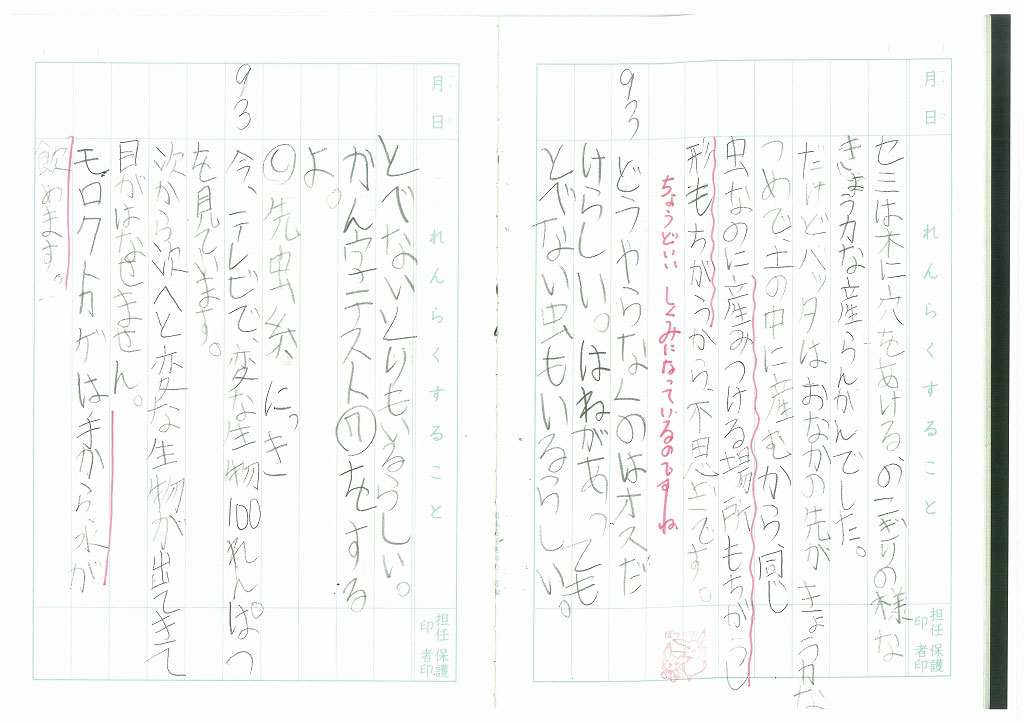 月 日
れんらくすること
担任印
保護者印
セミは木に穴をあける、のこぎりの様な
きょう力な産らんかんでした。
だけどバッタはおなかの先がきょう力な
つめで、土の中に産むから、同じ
虫なのに産みつける場所もちがうし
形もちがうから、不思ぎです。
ちょうどいい しくみになっているのですね
9 3
どうやらなくのはオスだ
けらしい。はねがあっても
とべない虫もいるらしい。
月 日
れんらくすること
担任印
保護者印
とべないとりもいるらしい。
かん字テスト⑪をする
よ。
先虫糸にっき
9 3
今、テレビで、変な生物100れんぱつ
を見ています。
次から次へと変な生物が出てきて
目がはなせません。
モロクトカゲは手から水が
飲めます。